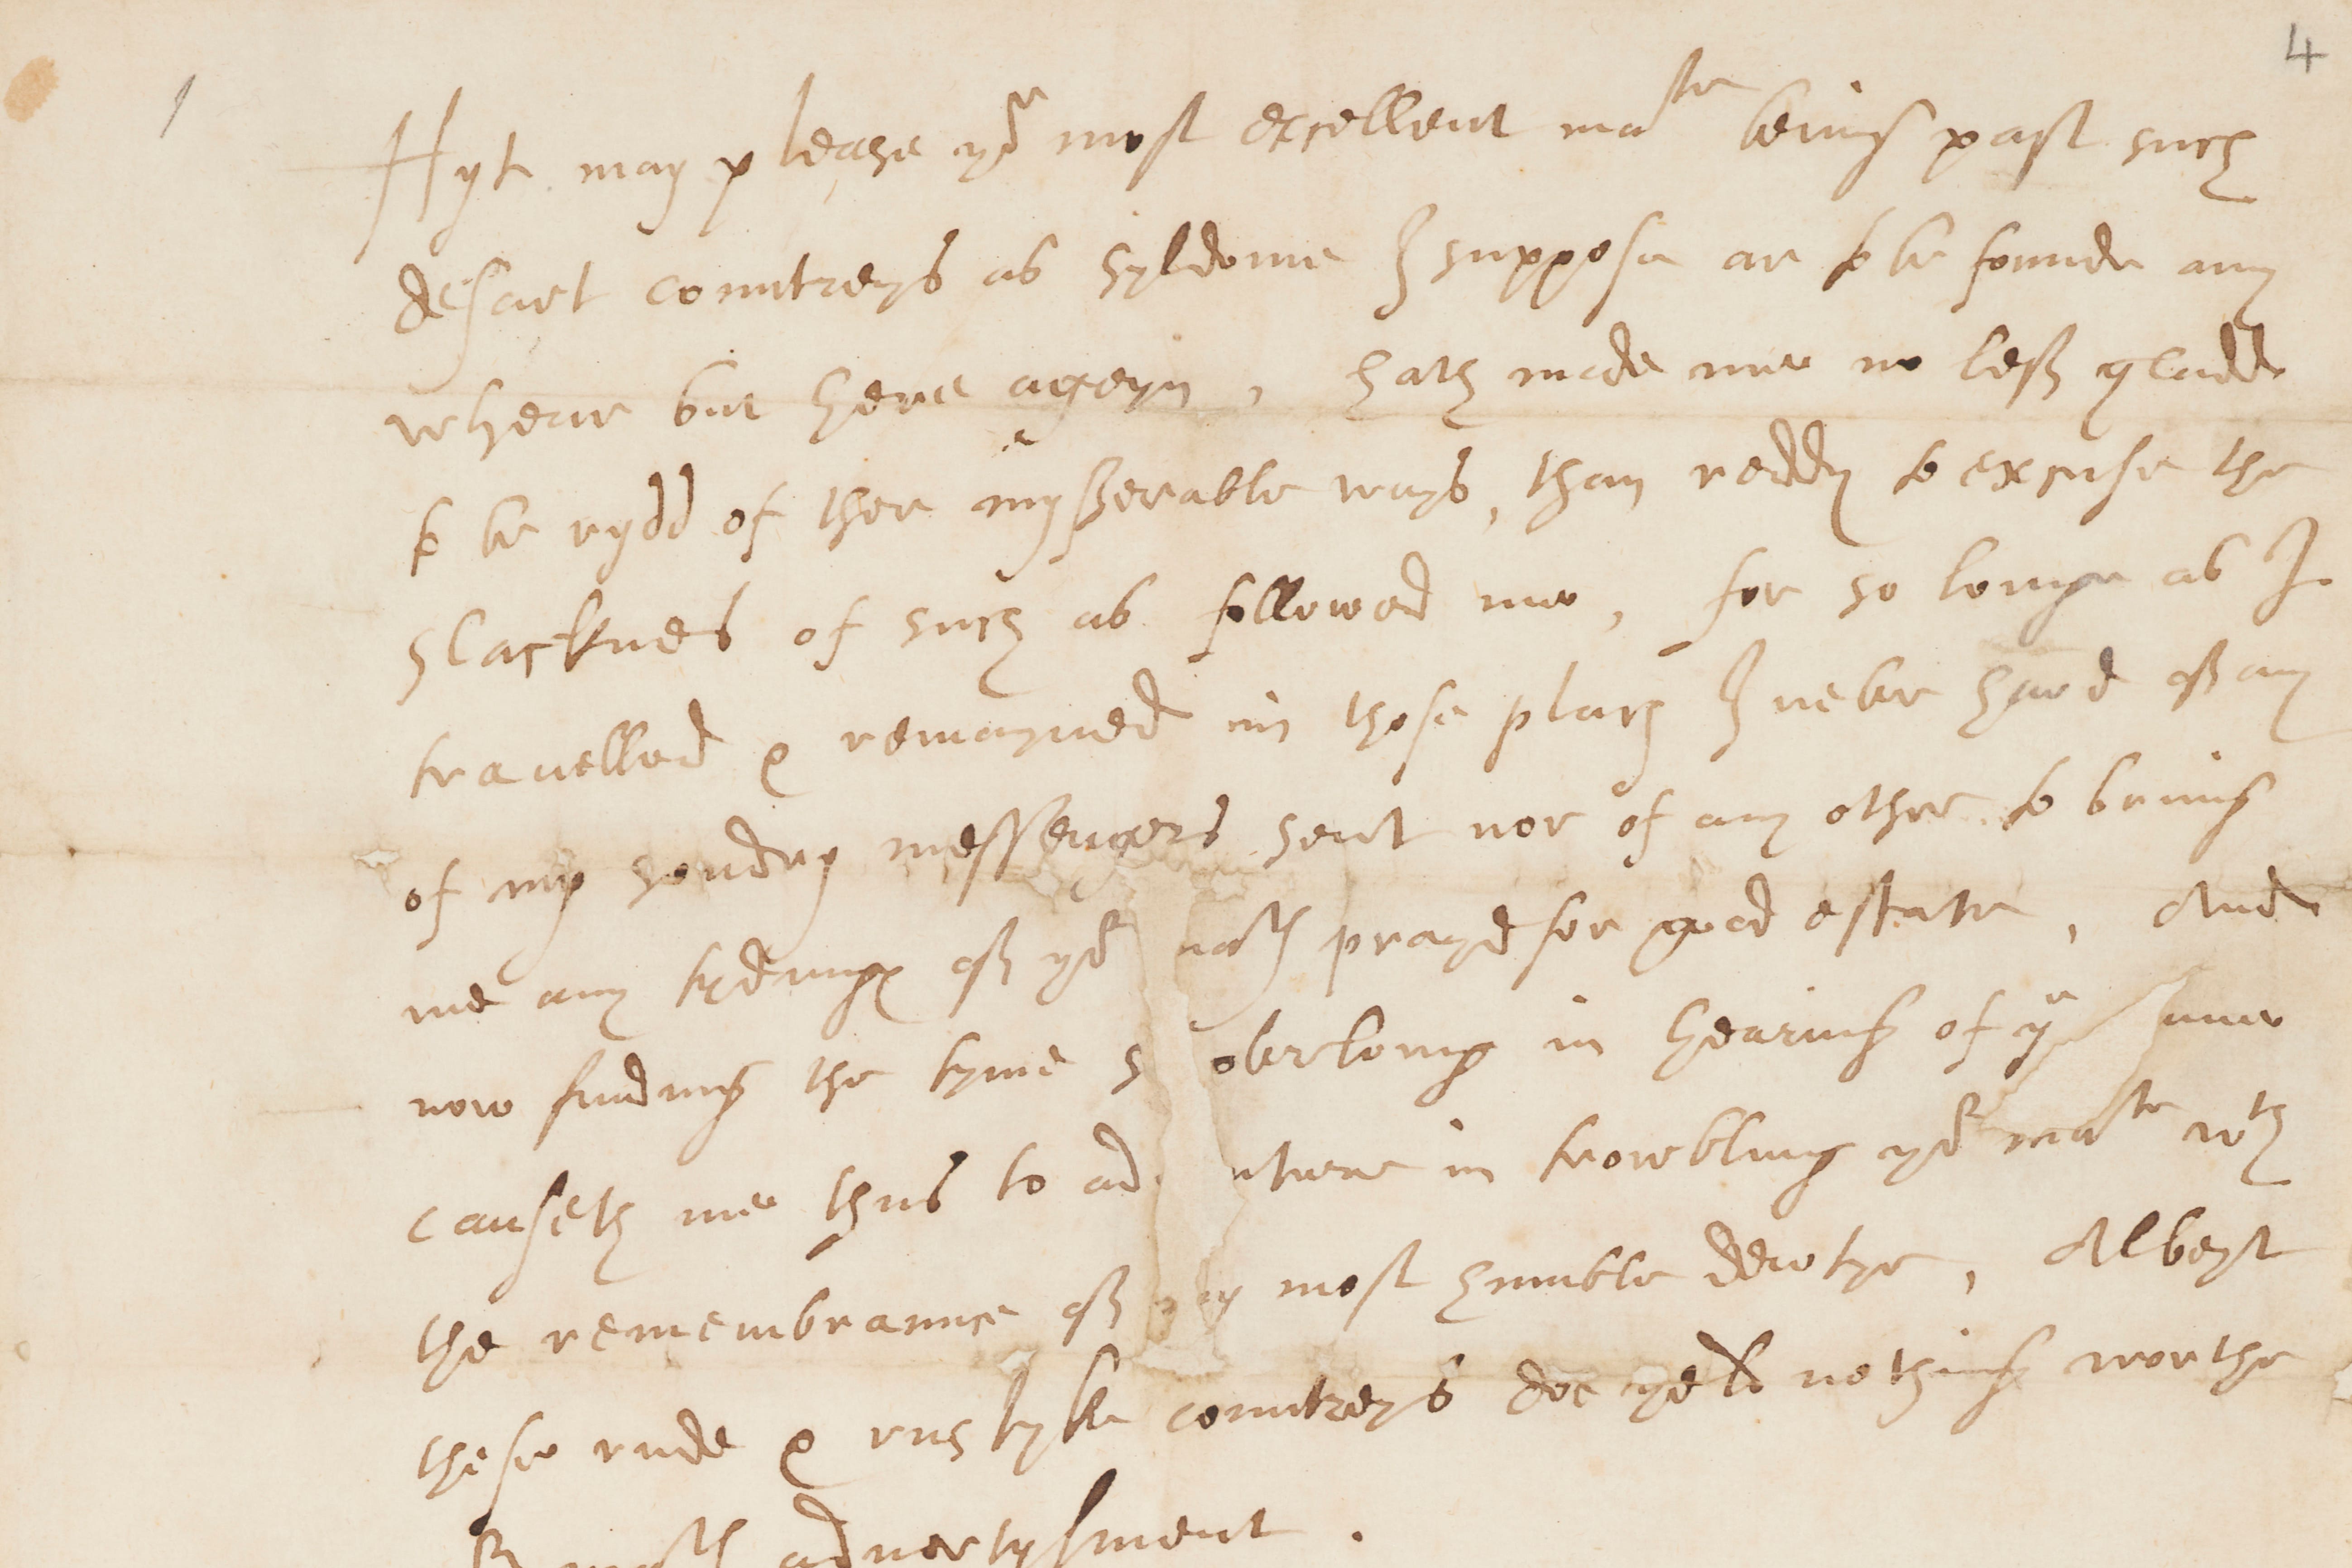 4
Hyt may please yor most excellent matie being past such
desart countreys as syldome I suppose ar to be founde any
whear but here ageyn, hath made me no less gladde
to be rydd of ther mysserable ways, than reddy to excuse the
slacknes of such as followed me, for so longe as I
travelled & remayned in those places I never hard off any
of my sondry messengers sent nor of any other to bring
me any tydinges off yor maties prayd for good estate, And
now finding the tyme so overlong in hearing of ye same
causeth me thus to adventure in trowbling yor matie wth
the remembrance off my most humble dewtye, Albeyt
these rude & rustyke countreys doe yeld nothing worthe
maties advertysment.